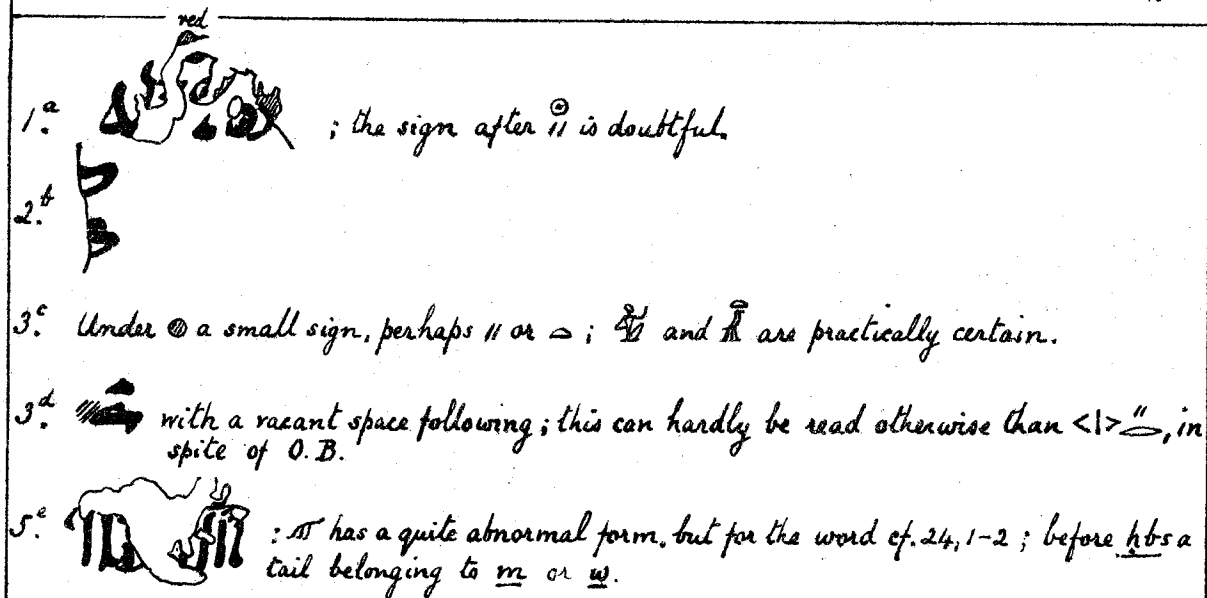 red
1.a ; the sign after 𓐍 \\ is doubtful.
2.b
3.c Under a small sign, perhaps \\ or 𓏏 ; and are practically certain.
3.d with a vacant space following; this can hardly be read otherwise than <|> , in
spite of O.B.
5.e : has a quite abnormal form, but for the word cf. 24, 1-2 ; before ḥbs a
tail belonging to m or w.